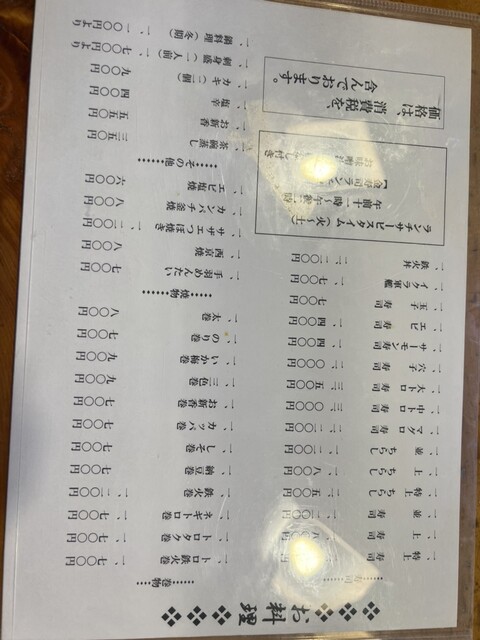 お料理
……寿司……
一、特上寿司
一、上寿司
一、並寿司
一、特上ちらし 二、五〇〇円
一、上ちらし 一、八〇〇円
一、並ちらし
一、マグロ寿司 二、二〇〇円
一、中トロ寿司 三、〇〇〇円
一、大トロ寿司 三、五〇〇円
一、穴子寿司 二、〇〇〇円
一、サーモン寿司 一、四〇〇円
一、エビ寿司 一、四〇〇円
一、玉子寿司 七〇〇円
一、イクラ軍艦 一、七〇〇円
一、鉄火丼 二、二〇〇円
ランチサービスタイム(火〜土)
午前十一時〜午後二時
価格は、消費税を、
含んでおります。
……巻物……
一、トロ鉄火巻 一、七〇〇円
一、トロタク巻 一、七〇〇円
一、ネギトロ巻 一、七〇〇円
一、鉄火巻 一、二〇〇円
一、納豆巻 七〇〇円
一、しそ巻 七〇〇円
一、カッパ巻 七〇〇円
一、お新香巻 七〇〇円
一、三色巻 九〇〇円
一、いか梅巻 九〇〇円
一、のり巻 七〇〇円
一、太巻 八〇〇円
……焼物……
一、手羽めんたい 七〇〇円
一、西京焼 八〇〇円
一、サザエつぼ焼き 一、二〇〇円
一、カンパチ釜焼 八〇〇円
一、エビ塩焼 六〇〇円
……その他……
一、茶碗蒸し 三五〇円
一、お新香 五五〇円
一、塩辛 四〇〇円
一、カキ(二個) 九〇〇円
一、刺身盛(一人前) 一、七〇〇円より
一、鍋料理(冬期) 一、一〇〇円より